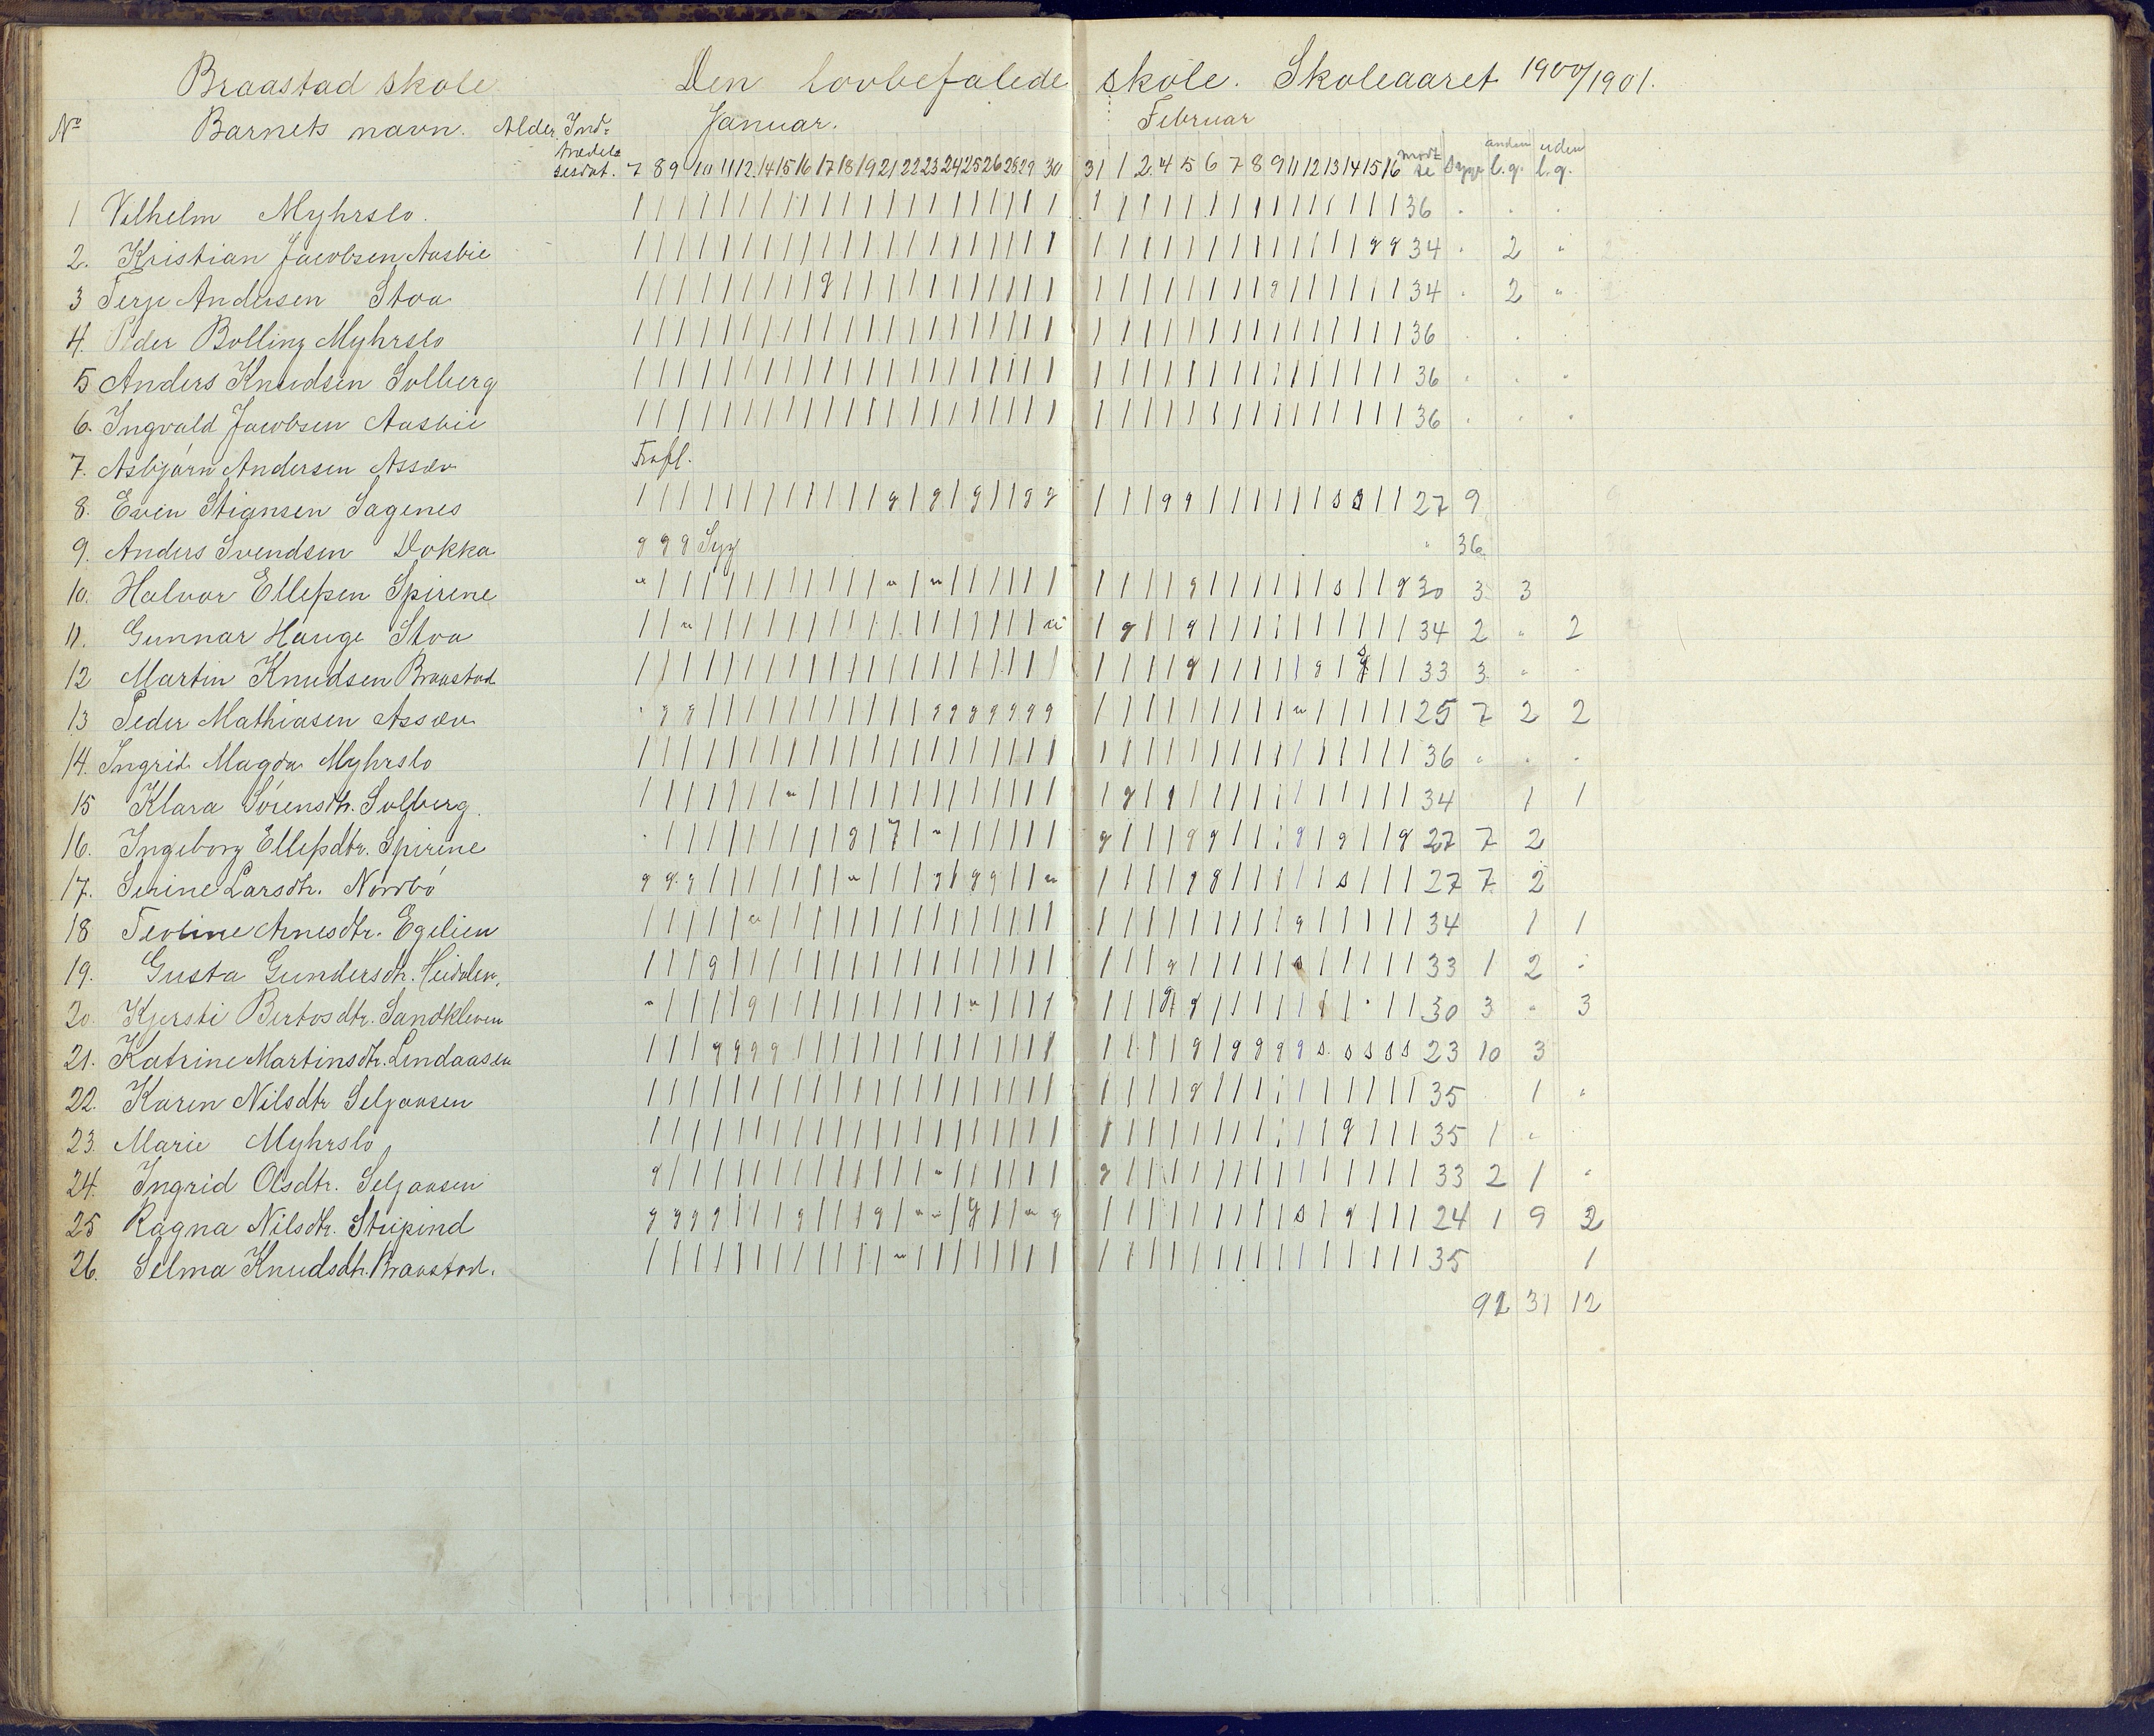 Braastad skole. Den lovbefalede skole. Skoleaaret 1900/1901.
No Barnets navn. Alder. Ind= Januar. Februar
anden uden
trædel= sesdat. 7 8 9 10 11 12 14 15 16 17 18 19 21 22 23 24 25 26 28 29 30 31 1 2 4 5 6 7 8 9 11 12 13 14 15 16 mødt se Syge l.g. l.g.
1 Vilhelm Myhrslo. 36 . . .
2. Kristian Jacobsen Aasbie g g 34 . 2 "
3 Terje Andersen Stoa g g 34 . 2 "
4. Peder Bolling Myhrslo 36 . . .
5 Anders Knudsen Solberg 36 . . .
6. Ingvald Jacobsen Aasbie 36 . . .
7. Asbjørn Andersen Assev
8. Even Stiansen Sagenes g g g g g g g s s 27 9
9. Anders Svendsen Dokka g g g Syg " 36
10. Halvor Ellefsen Spirene " " " g s g 30 3 3
11. Gunnar Hauge Stoa " " g g 34 2 " 2
12 Martin Knudsen Braastad g g s 33 3 " "
13 Peder Mathiasen Assev " g g g g g g g g g " 25 7 2 2
14. Ingrid Magda Myhrslo 36 " . .
15 Klara Sørensdtr. Solberg. " g g 34 1 1
16. Ingeborg Ellefsdtr. Spirene " g 7 " g g g g g g 27 7 2
17. Serine Larsdtr. Nørsbø g g g " g g g " g g s 27 7 2
18 Teoline Arnesdtr. Egelien " g 34 1 1
19. Gusta Gundersdtr. g g s 33 1 2 "
20. Kjersti Bertosdtr. Sandkleven " g " g g g " 30 3 " 3
21. Katrine Martinsdtr. Lindaasen g g g g g g g g g s s s s s 23 10 3
22. Karen Nilsdtr Seljaasen g 35 1 "
23. Marie Myhrslo g 35 1 "
24. Ingrid Olsdtr. Seljaasen g " g 33 2 1 "
25 Ragna Nilsdtr. Stupind g g g g g g " " g " g s g 24 1 9 2
26. Selma Knudsdtr. Braastad. " 35 1
92 31 12